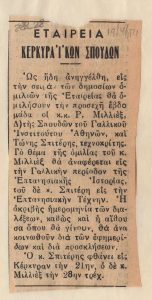 19/4/54
ΕΤΑΙΡΕΙΑ
ΚΕΡΚΥΡΑ·Ι·ΚΩΝ ΣΠΟΥΔΩΝ
Ὡς ἤδη ἀνηγγέλθη, εἰς
τὴν σειρὰ τῶν δημοσίων ὁ-
μιλιῶν τῆς Ἑταιρείας θὰ ὁ-
μιλήσουν τὴν προσεχῆ ἑβδο-
μάδα οἱ κ.κ. Ρ. Μιλλιέξ,
Δ)τὴς Σπουδῶν τοῦ Γαλλικοῦ
Ἰνστιτούτου Ἀθηνῶν, καὶ
Τώνης Σπητέρης, τεχνοκρίτης.
Τὸ θέμα τῆς ὁμιλίας τοῦ κ.
Μιλλιὲξ θὰ ἀναφέρεται εἰς
τὴν Γαλλικὴν περίοδον τῆς
Ἑπτανησιακῆς Ἱστορίας,
τοῦ δὲ κ. Σπιτέρη εἰς τὴν
Ἑπτανησιακὴν Τέχνην. Ἡ
ἀκριβὴς ἡμερομηνία τῶν δια-
λέξεων, καθὼς καὶ ἡ αἴθου-
σα ὅπου θὰ γίνουν, θὰ ἀνα-
κοινωθοῦν διὰ τῶν ἐφημερί-
δων καὶ διὰ προσκλήσεων.
Ὁ κ. Σπιτέρης φθάνει εἰς
Κέρκυραν τὴν 21ην, ὁ δὲ κ.
Μιλλιὲξ τὴν 28ην τρέχ.